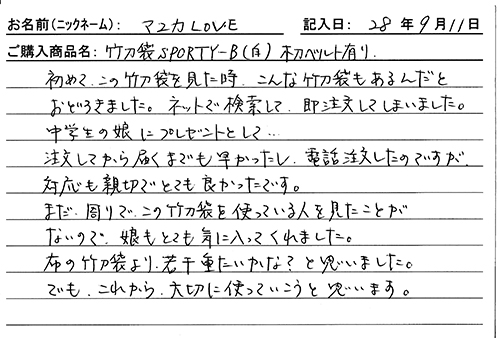 お名前(ニックネーム): マユカLOVE 記入日: 28年9月11日
ご購入商品名: 竹刀袋SPORTY-B(白)木刀ベルト有り.
初めて、この竹刀袋を見た時、こんな竹刀袋もあるんだと
おどろきました。ネットで検索して、即注文してしまいました。
中学生の娘にプレゼントとして…
注文してから届くまでも早かったし、電話注文したのですが、
対応も親切でとても良かったです。
まだ、周りで、この竹刀袋を使っている人を見たことが
ないので、娘もとても気に入ってくれました。
布の竹刀袋より、若干重たいかな?と思いました。
でも、これから、大切に使っていこうと思います。